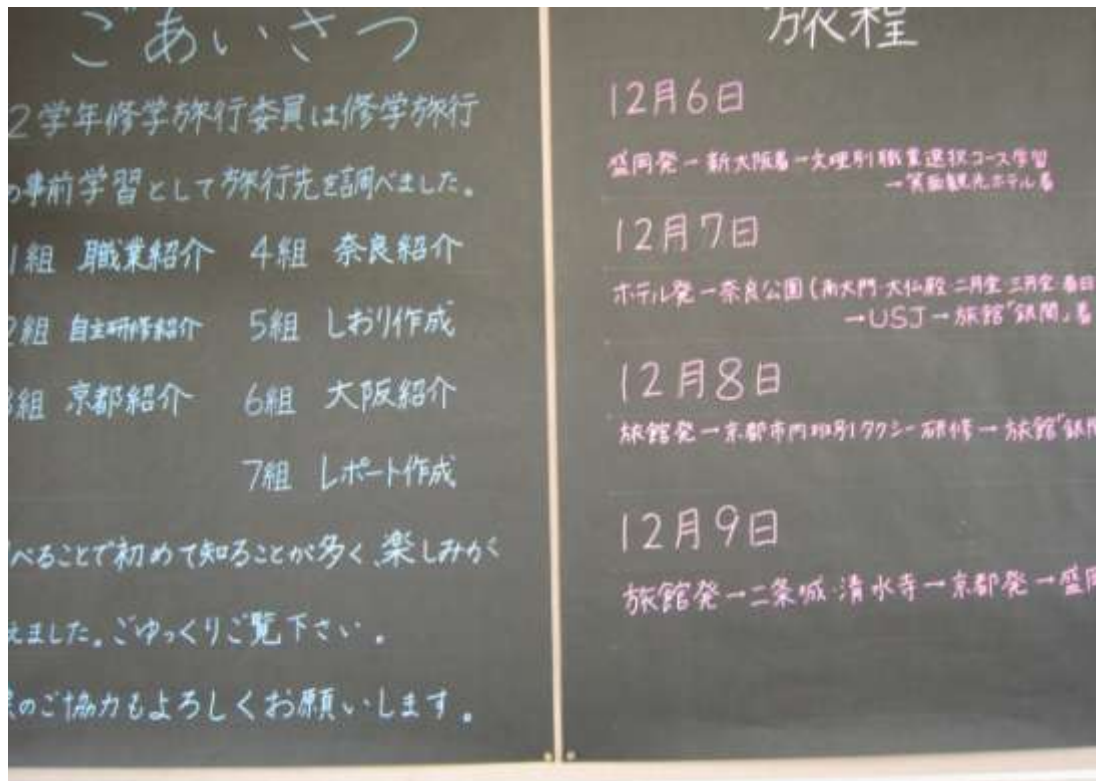 ごあいさつ
2学年修学旅行委員は修学旅行
の事前学習として旅行先を調べました。
1組 職業紹介 4組 奈良紹介
2組 自主研修紹介 5組 しおり作成
3組 京都紹介 6組 大阪紹介
7組 レポート作成
べることで初めて知ることが多く、楽しみがく
えました。ごゆっくりご覧下さい。
のご協力もよろしくお願いします。
旅程
12月6日
盛岡発→新大阪着→文理別職業選択コース学習
→箕面観光ホテル着
12月7日
ホテル発→奈良公園(南大門・大仏殿・二月堂・三月堂・春日
→USJ→旅館「銀閣」着
12月8日
旅館発→京都市内班別タクシー研修→旅館「銀閣
12月9日
旅館発→二条城・清水寺→京都発→盛岡